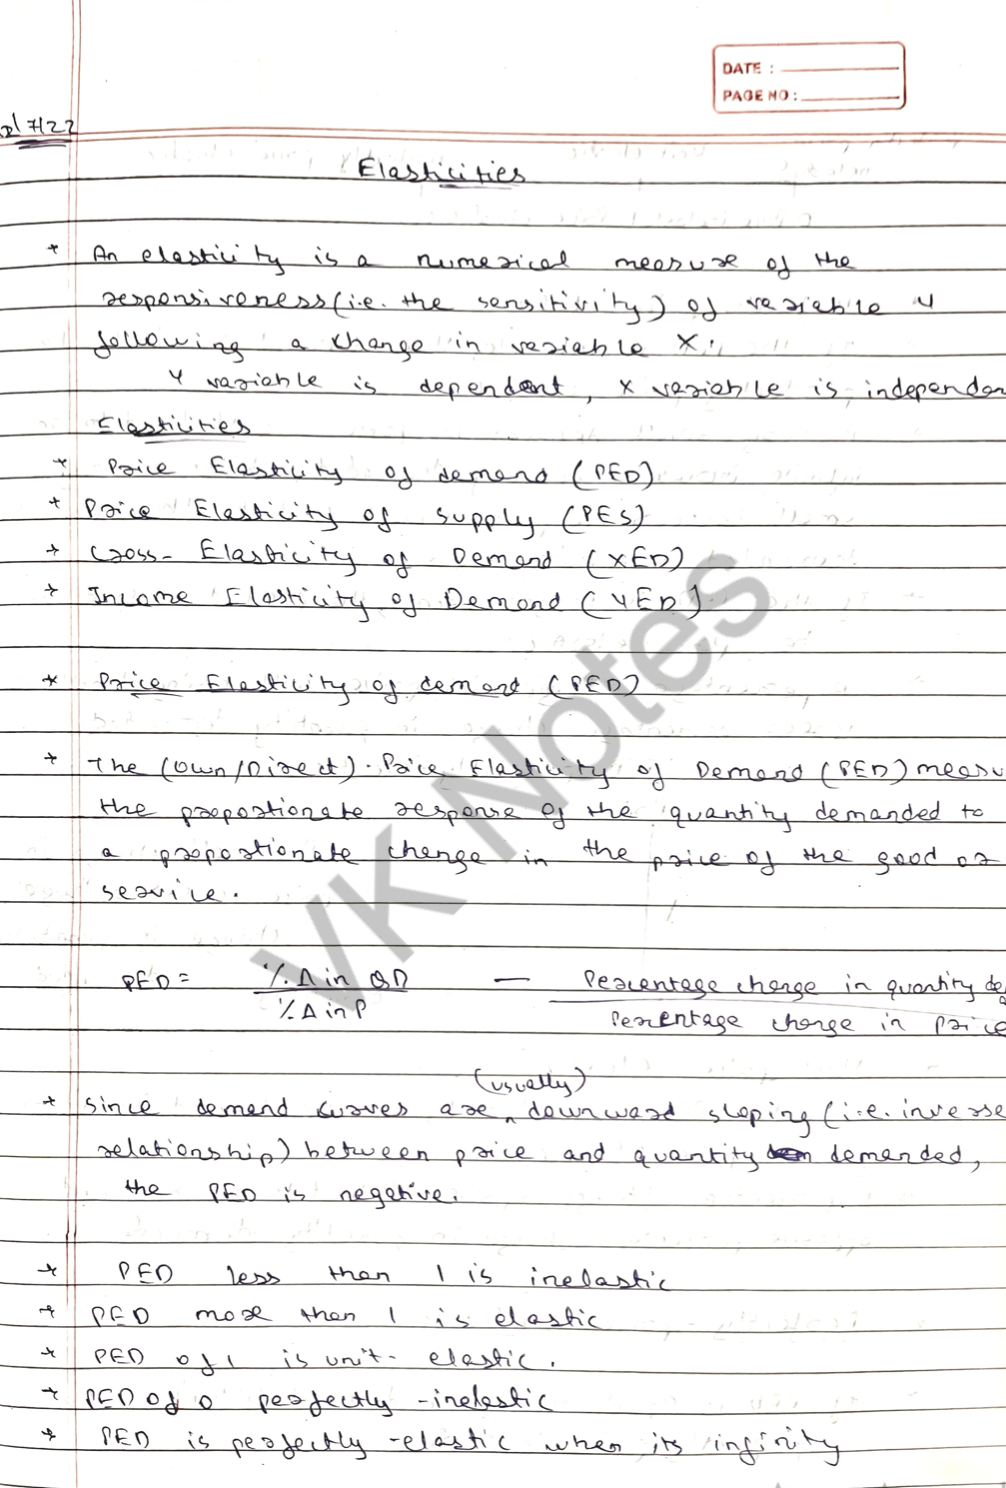 DATE :
PAGE NO :
7/22
Elasticities
* An elasticity is a numerical measure of the
responsiveness (i.e. the sensitivity) of variable Y
following a change in variable X.
Y variable is dependent, X variable is independen
Elasticities
* Price Elasticity of demand (PED)
* Price Elasticity of supply (PES)
* Cross- Elasticity of Demand (XED)
* Income Elasticity of Demand (YED)
* Price Elasticity of demand (PED)
* The (Own/Direct) Price Elasticity of Demand (PED) measu
the proportionate response of the quantity demanded to
a proportionate change in the price of the good or
service.
PED = %Δ in QD — Percentage change in quantity de
%Δ in P Percentage change in price
(usually)
* since demand curves are downward sloping (i.e. inverse
relationship) between price and quantity demanded,
the PED is negative.
* PED less than 1 is inelastic
* PED more than 1 is elastic
* PED of 1 is unit- elastic.
* PED of 0 perfectly -inelastic
* PED is perfectly -elastic when its infinity
VK Notes